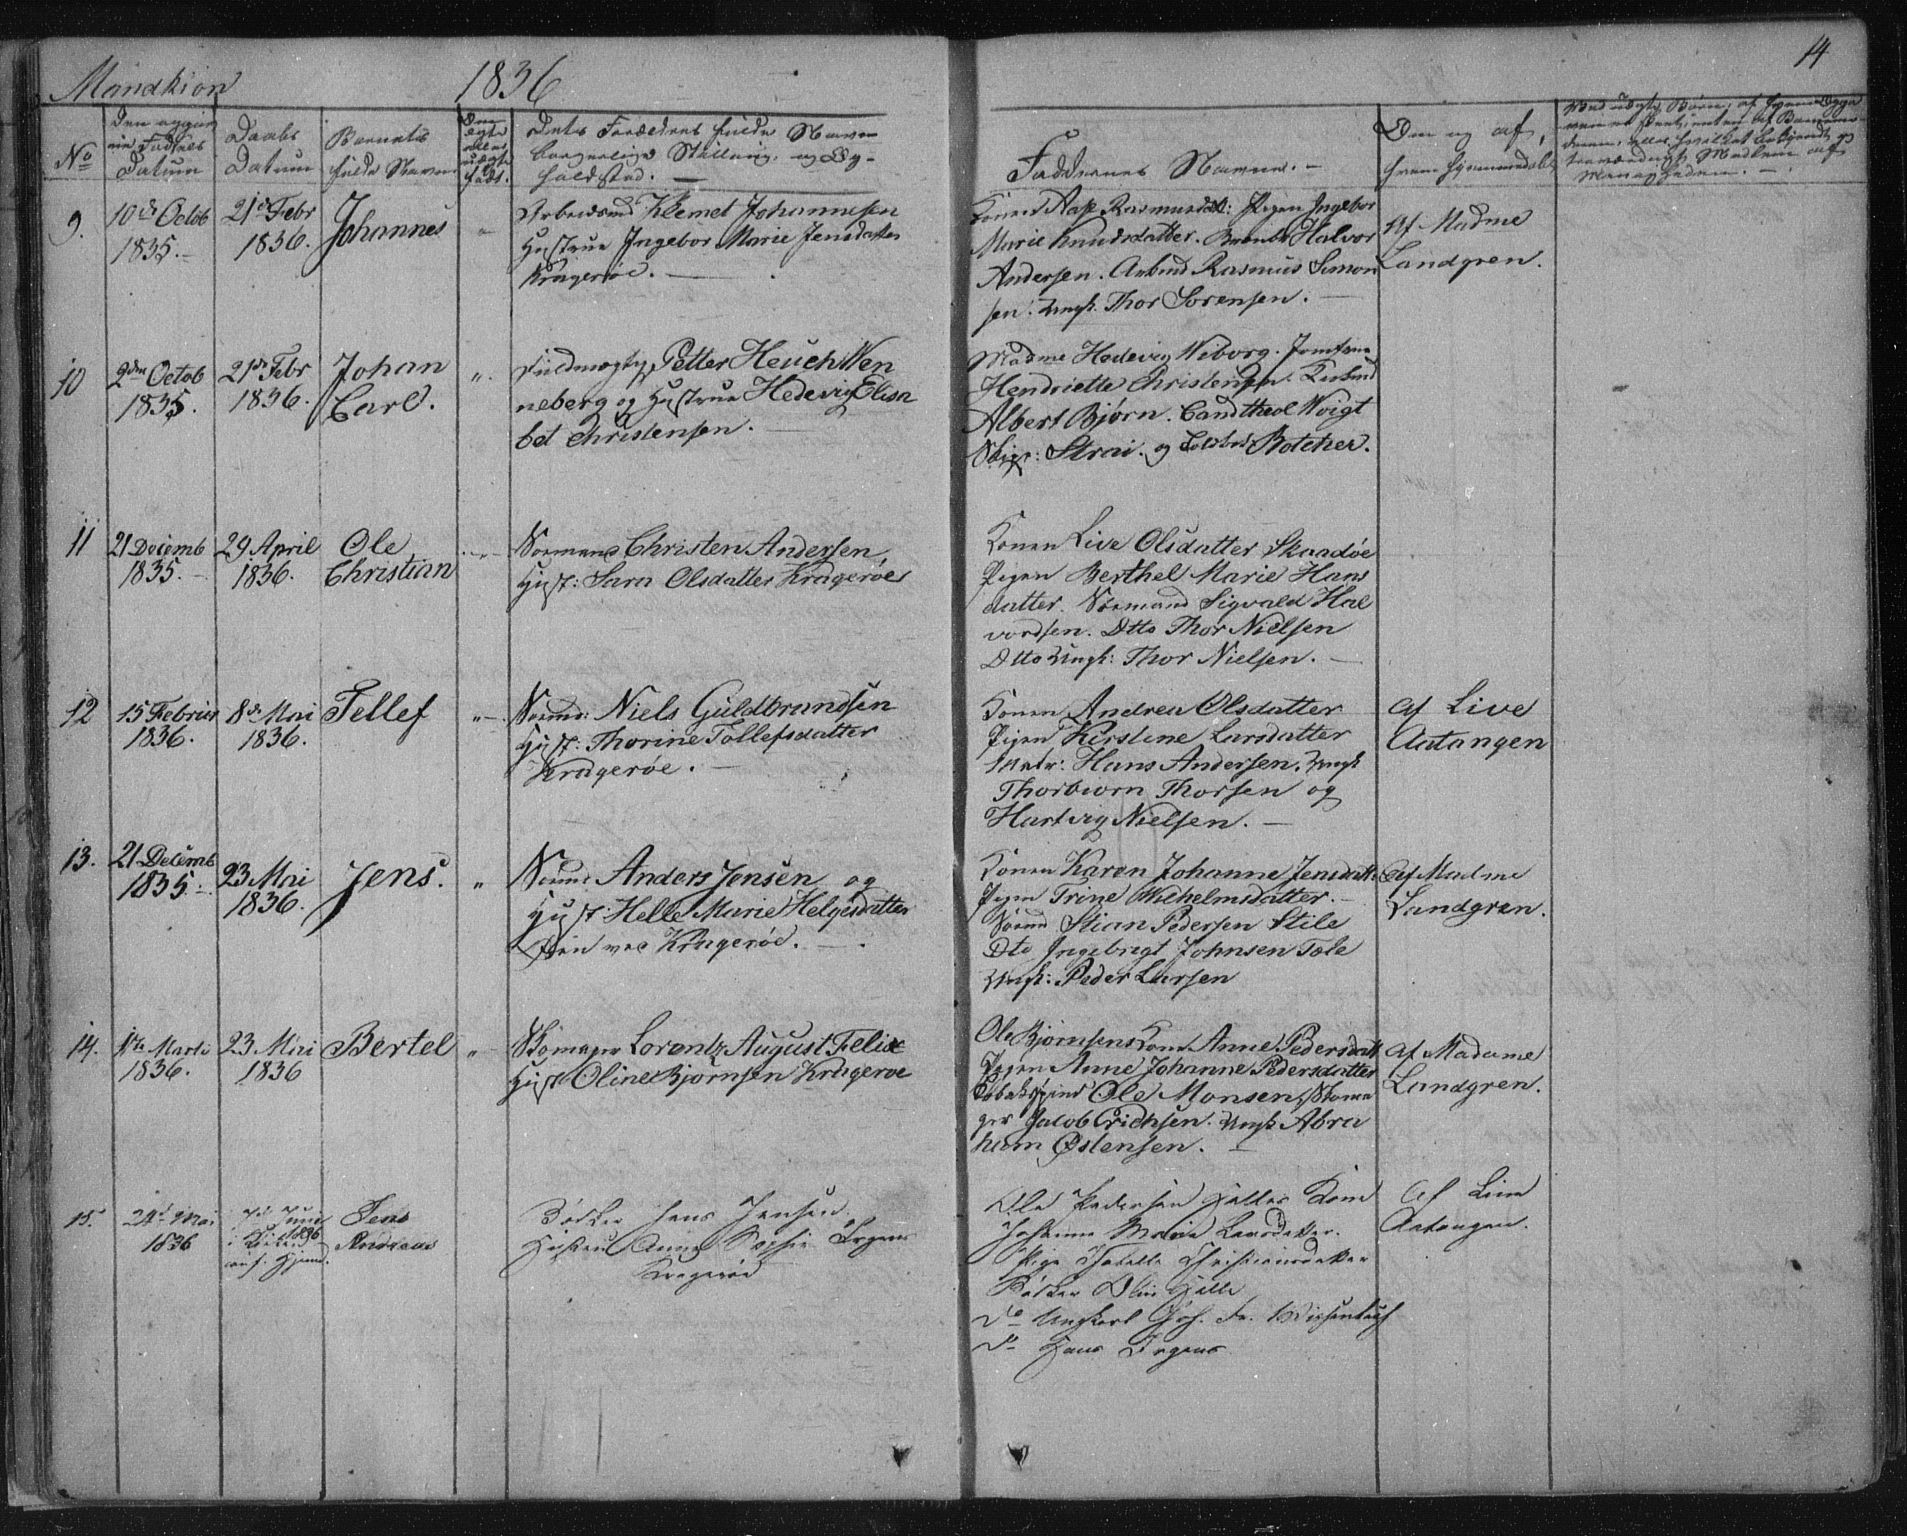 Mandkiön
1836
14
No
Den opgiv
ne Fødsels
Datum
Daabs
Datum
Barnets
fulde Navn
Dets Forældres fulde Navn
borgerlige Stilling, og Op-
holdsted. —
Faddernes Navne. —
Om og af
hvem hjemmedøbt
9.
10de Octob
1835. —
21de Febr
1836.
Johannes
"
Arbeidsmd Klemet Johannesen
Hustrue Ingebor Marie Jensdatter
Kragerøe. —
Konen Aase Rasmusdat: Pigen Ingebor
Marie Knudsdatter. Halvor
Andersen. Arbmd Rasmus Simon
sen. Ungk. Thor Sørensen. —
Af Madme
Landgren.
10
2den Octob
1835.
21de Febr
1836.
Johan
Carl.
"
Fuldmægtig Petter Heuch Wen
neberg og Hustrue Hedevig Elisa
bet Christensen. —
Madme Hedevig Wiborg. Jomfrue
Henriette Christensen.
Albert Bjørn. Candtheol Woigt
Skipr: Strai. og Botcher.
11
21 Decemb
1835. —
29 April
1836.
Ole
Christian
"
Sømand Christen Andersen
Hust: Sara Olsdatter Kragerøe
Konen Live Olsdatter Skaadøe
Pigen Berthel Marie Hans
datter. Sømand Sigvald Hal
vordsen. Dtto Thor Nielsen
Dtto Ungk: Thor Nielsen. —
12
15 Februer
1836.
8de Mai
1836.
Tellef
"
Sømd: Niels Guldbrandsen
Hust: Thorine Tollefsdatter
Kragerøe. —
Konen Andrea Olsdatter
Pigen Kirstine Larsdatter
Hans Andersen. Ungk
Thorbiorn Thorsen og
Hartvig Nielsen. —
Af Live
Aatangen
13.
21 Decemb
1835.
23 Mai
1836.
Jens.
"
Sømd Anders Jensen og
Hust: Helle Marie Helgesdatter
ved Kragerøe. —
Konen Karen Johanne Jensdatt:
Pigen Trine Wilhelmsdatter. —
Sømd Stian Pedersen Stile
Dto Ingebrigt Johnsen Tæle
Ungk: Peder Larsen
Af Madme
Landgren.
14.
1ste Marti
1836.
23 Mai
1836
Bertel
"
Skomager Lorentz August Felix
Hust Oline Bjørnsen Kragerøe
Ole Bjørnsens Kone Anne Pedersdatt
Pigen Anne Johanne Pedersdatter
Tobakspind Ole Monsen, Skoma
ger Jacob Erichsen. Ungk Abra
ham Østensen. —
Af Madame
Landgren.
15.
24d Mai
1836
Juni
1836
i Kirken
conf. Hjemd.
Jens
Andreas
Bödker Jens Jensen
Hustrue Anne Sophie Örgens
Kragerøe
Ole Pedersen Helles Kone
Johanne Maria Larsdatter.
Pige Isabelle Christensdatter
Bödker Helle
Do Ungkarl Joh. Fr. Wissenbach
Do Hans Örgens
Af Live
Aatangen.